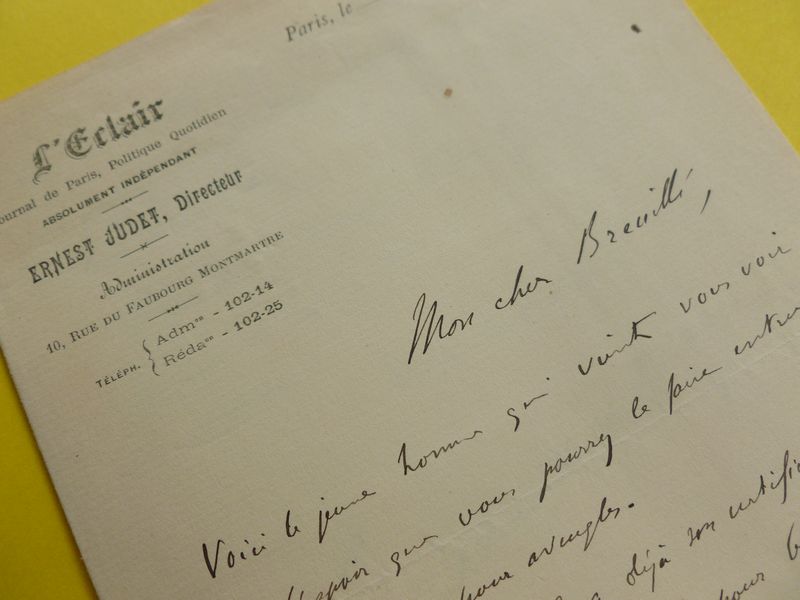 Paris, le
L'Eclair
Journal de Paris, Politique Quotidien
ABSOLUMENT INDÉPENDANT
ERNEST JUDET, Directeur
Administration
10, RUE DU FAUBOURG MONTMARTRE
TÉLÉPH. { Admon - 102-14
Rédaon - 102-25
Mon cher Breuillé,
Voici le jeune homme qui vient vous voir
espoir que vous pourrez le faire entrer
pour aveugles.
déjà son certific
pour